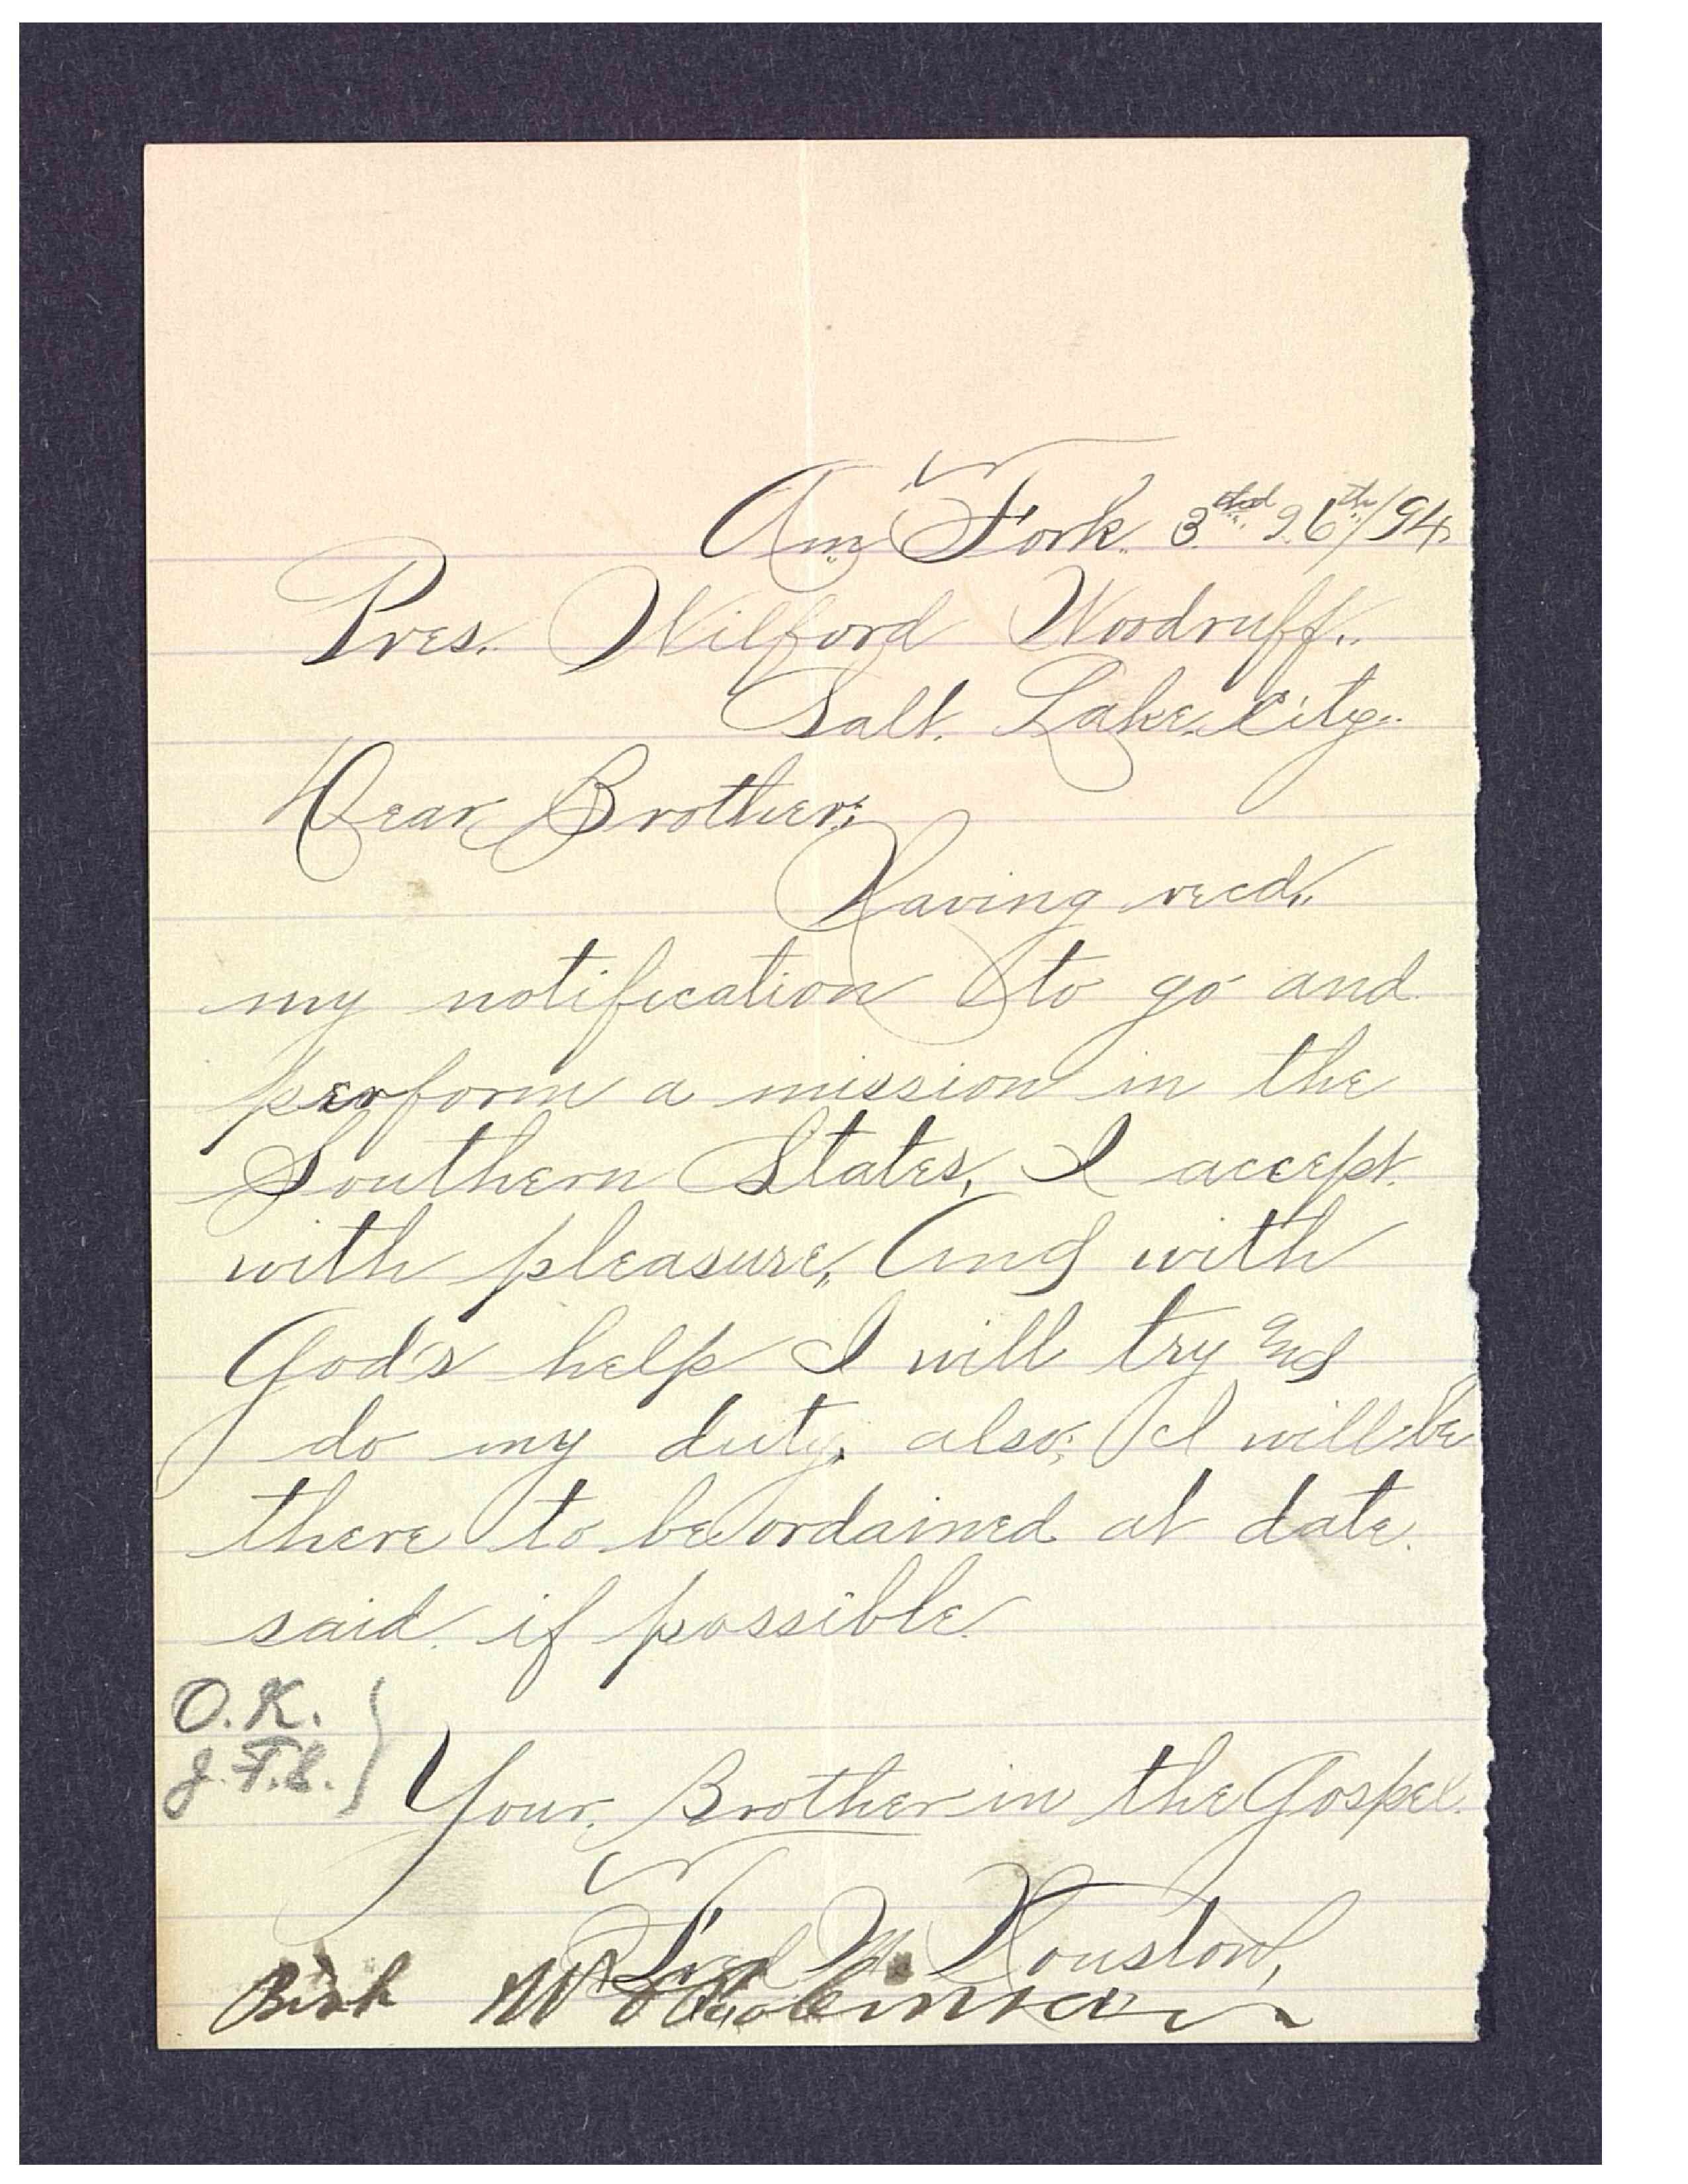 Am Fork. 3rd 26th/94
Pres. Wilford Woodruff.
Salt. Lake City.
Dear Brother;
Having recd.
my notification to go and
perform a mission in the
Southern States, I accept
with pleasure, And with
God's help I will try and
do my duty, also; I will be
there to be ordained at date
said if possible
O.K.
J.F.S.
Your Brother in the Gospel
Fred M. Houston,
Bish W D Robinson